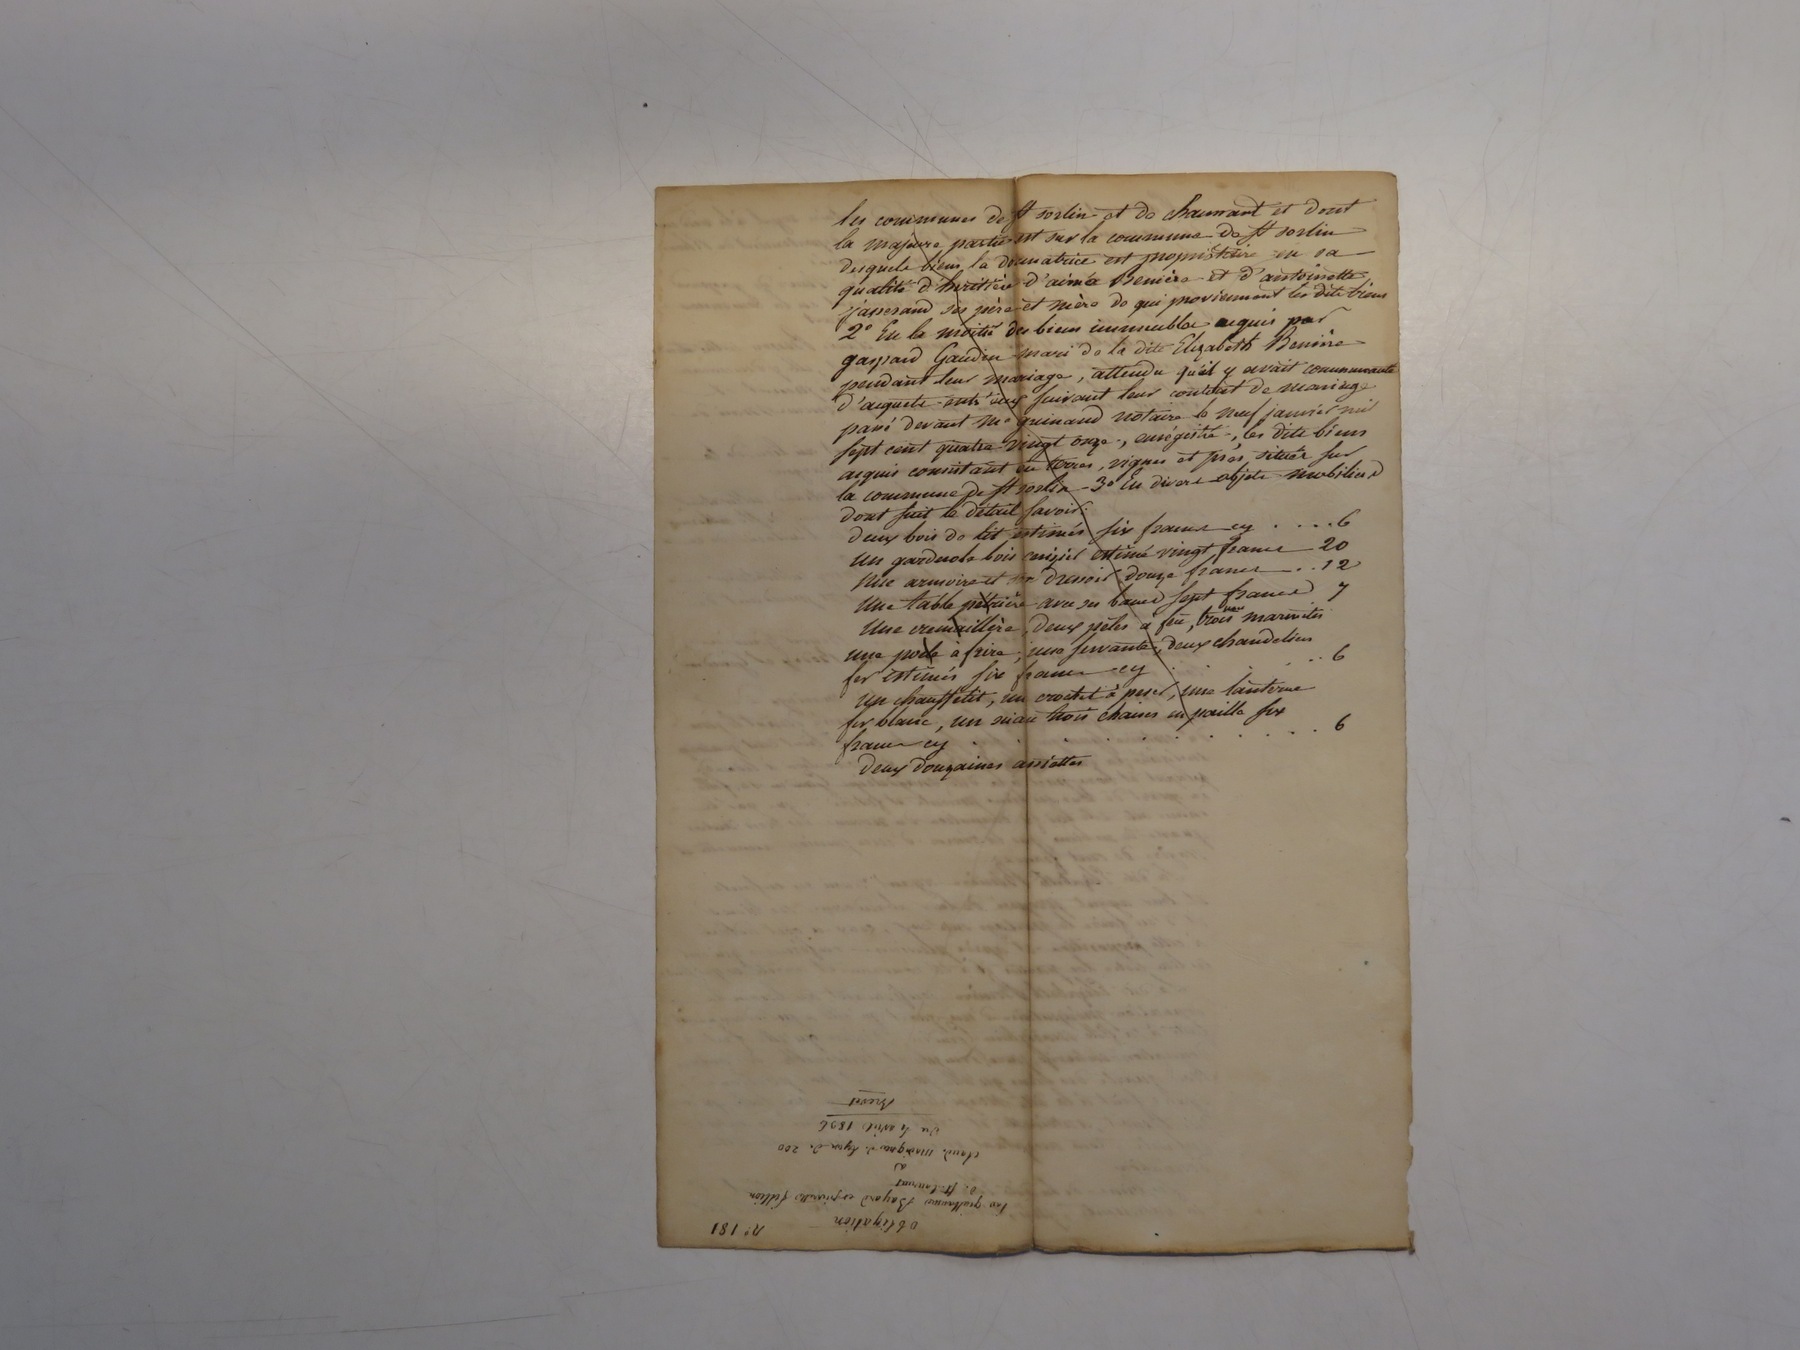 les communes de st sorlin et de chaumant et dont
la majeure partie est sur la commune de st sorlin
desquels biens la donnatrice est propriétaire en sa
qualité d'heritière d'aimé Benière et d'antoinette
jasserand ses père et mère de qui proviennent les dits biens
2° En la moitié des biens immeubles aquis par
gaspard Gaudin mari de la dite Elizabeth Benière
pendant leur mariage, attendu qu'il y avait communauté
d'aquets entr'eux suivant leur contrat de mariage
passé devant me guinand notaire le neuf janvier mil
sept cent quatre vingt onze, enrégistré, les dits biens
aquis consistant en terres, vignes et prés, situés sur
la commune de st sorlin 3° En divers objets mobiliers
dont suit le détail savoir:
deux bois de lit estimés six francs cy .... 6
un garderobe bois cerisier estimé vingt francs 20
une armoire et son dressoir douze francs .. 12
Une table pétrière avec ses bancs sept francs 7
Une cremaillère, deux pèles à feu, trois marmites
une poele à frire, une servante, deux chandeliers
fer estimés six francs cy . . . .. 6
un chauffelit, un crochet à peser, une lanterne
fer blanc, un trois chaises en paille six
francs cy . . . . . . . . . . 6
deux douzaines assiettes
N° 181
Obligation
par guillaume Bayard et pierrette fillion
de st laurent
à
claude de lyon de 200
du 4 avril 1826
Brevet